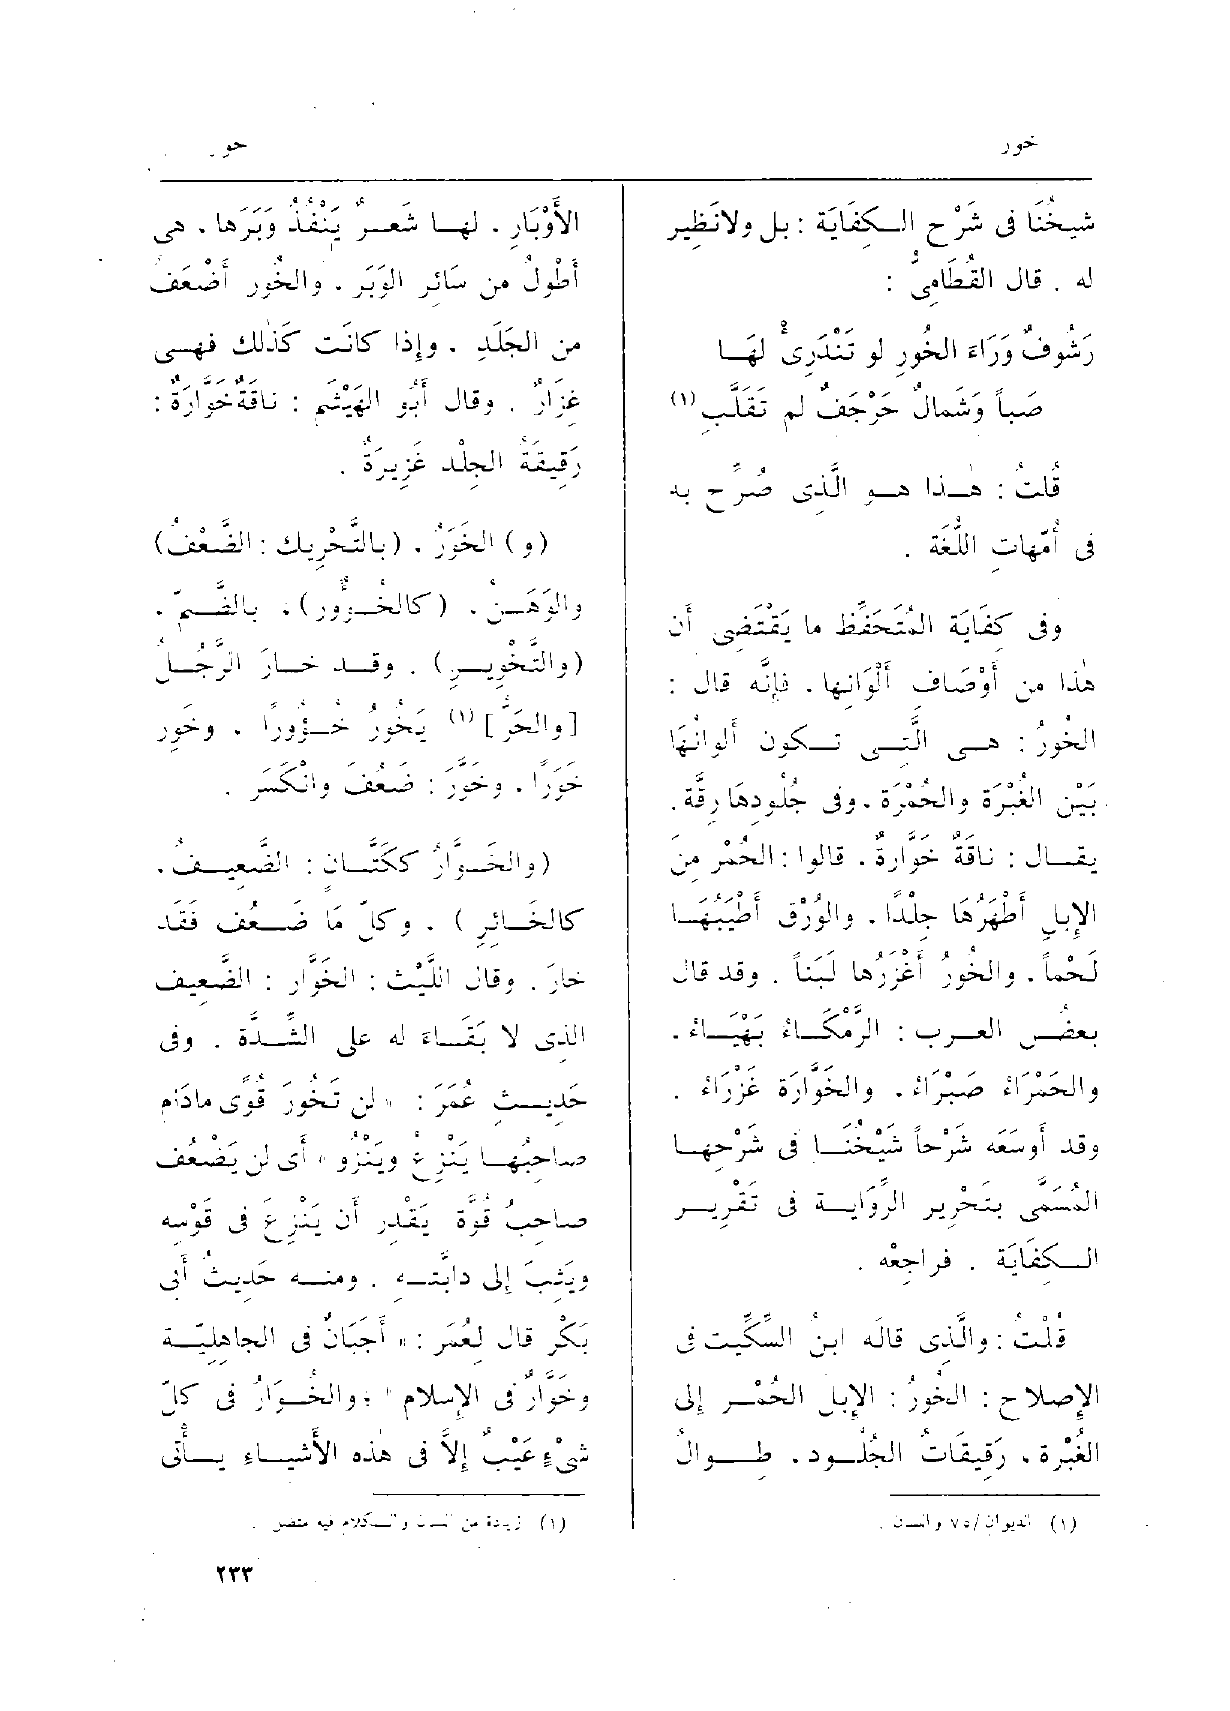 خور
خور
شيخُنَا فى شَرْحِ الكِفَايَة : بل ولانَظِير
له . قال القُطَامِىُّ :
رَشُوفٌ وَرَاءَ الخُورِ لو تَنْدَرِئْ لهَا
صَباً وَشَمالٌ حَرْجَفٌ لم تَقَلَّبِ (١)
قُلتُ : هٰذا هو الَّذى صُرِّحَ به
فى أُمّهاتِ اللُّغَة .
وفى كِفَايَة المُتَحَفِّظ ما يَقْتَضِى أَن
هٰذا من أَوْصَافِ أَلْوَانِها . فإِنَّه قال :
الخُورُ : هى الَّتِى تكون أَلوانُهَا
بَيْنَ الغُبْرَة والحُمْرَة ، وفى جُلُودِهَا رِقَّة .
يقال : ناقَةٌ خَوّارَةٌ . قالوا : الحُمْر مِنَ
الإِبلِ أَطْهَرُهَا جِلْدًا . والوُرْق أَطْيَبُهَا
لَحْماً . والخُورُ أَغْزَرُها لَبَناً . وقد قال
بعضُ العرب : الرَّمْكَاءُ بَهْيَاءُ .
والحَمْرَاءُ صَبْرَاءُ . والخَوَّارَة غَزْرَاءُ .
وقد أَوسَعَه شَرْحاً شَيْخُنَا فى شَرْحِها
المُسَمَّى بتَحْرِير الرِّوَايَة فى تَقْرِير
الكِفَايَة . فراجِعْه .
قُلْتُ : والَّذى قالَه ابنُ السِّكِّيت فى
الإِصلاح : الخُورُ : الإِبل الحُمْر إِلى
الغُبْرة ، رَقِيقَاتُ الجُلُود . طِوالُ
(١) الديوان /٧٥ واللسان .
الأَوْبَارِ . لها شَعرٌ يَنْفُذُ وَبَرَها . هى
أَطْوَلُ من سَائِر الوَبَر . والخُور أَضْعَفُ
من الجَلَدِ . وإِذا كانَت كَذٰلك فهى
غِزَارٌ . وقال أَبُو الهَيْثَم : ناقَةٌ خَوَّارَةٌ :
رَقِيقَةُ الجِلْد غَزِيرَةٌ .
(و) الخَوَرُ ، (بالتَّحْرِيك : الضَّعْفُ)
والوَهَنُ ، (كالخُؤُورِ) ، بالضَّمِّ .
(والتَّخْوِير) . وقد خارَ الرَّجُلُ
[والحَرُّ] (١) يَخُورُ خُؤُورًا . وخَوِرَ
خَوَرًا . وخَوَّرَ : ضَعُفَ وانْكَسَر .
(والخَوّارُ ككَتَّان : الضَّعيفُ ،
كالخَائِرِ ) . وكلّ مَا ضَعُف فَقَد
خارَ . وقال اللَّيْث : الخَوّار : الضَّعيف
الذى لا بَقَاءَ له على الشِّدَّة . وفى
حَديثِ عُمَرَ : « لن تَخُورَ قُوًى مادَام
صاحِبُها يَنْزِعُ ويَنْزُو » أَى لن يَضْعُفَ
صاحِبُ قُوَّة يَقْدِر أَن يَنْزِعَ فى قَوْسِه
ويَثِبَ إِلى دابَّتِه . ومنه حَدِيثُ أَبى
بَكْر قال لِعُمَر : « أَجَبَانٌ فى الجاهِليّة
وخَوّارٌ فى الإِسلام » ؛ والخَوّارُ فى كلّ
شىْءٍ عَيْبٌ إِلاَّ فى هٰذه الأَشْياءِ يأْتى
(١) زيادة من اللسان والكلام فيه متصل .
٢٣٣